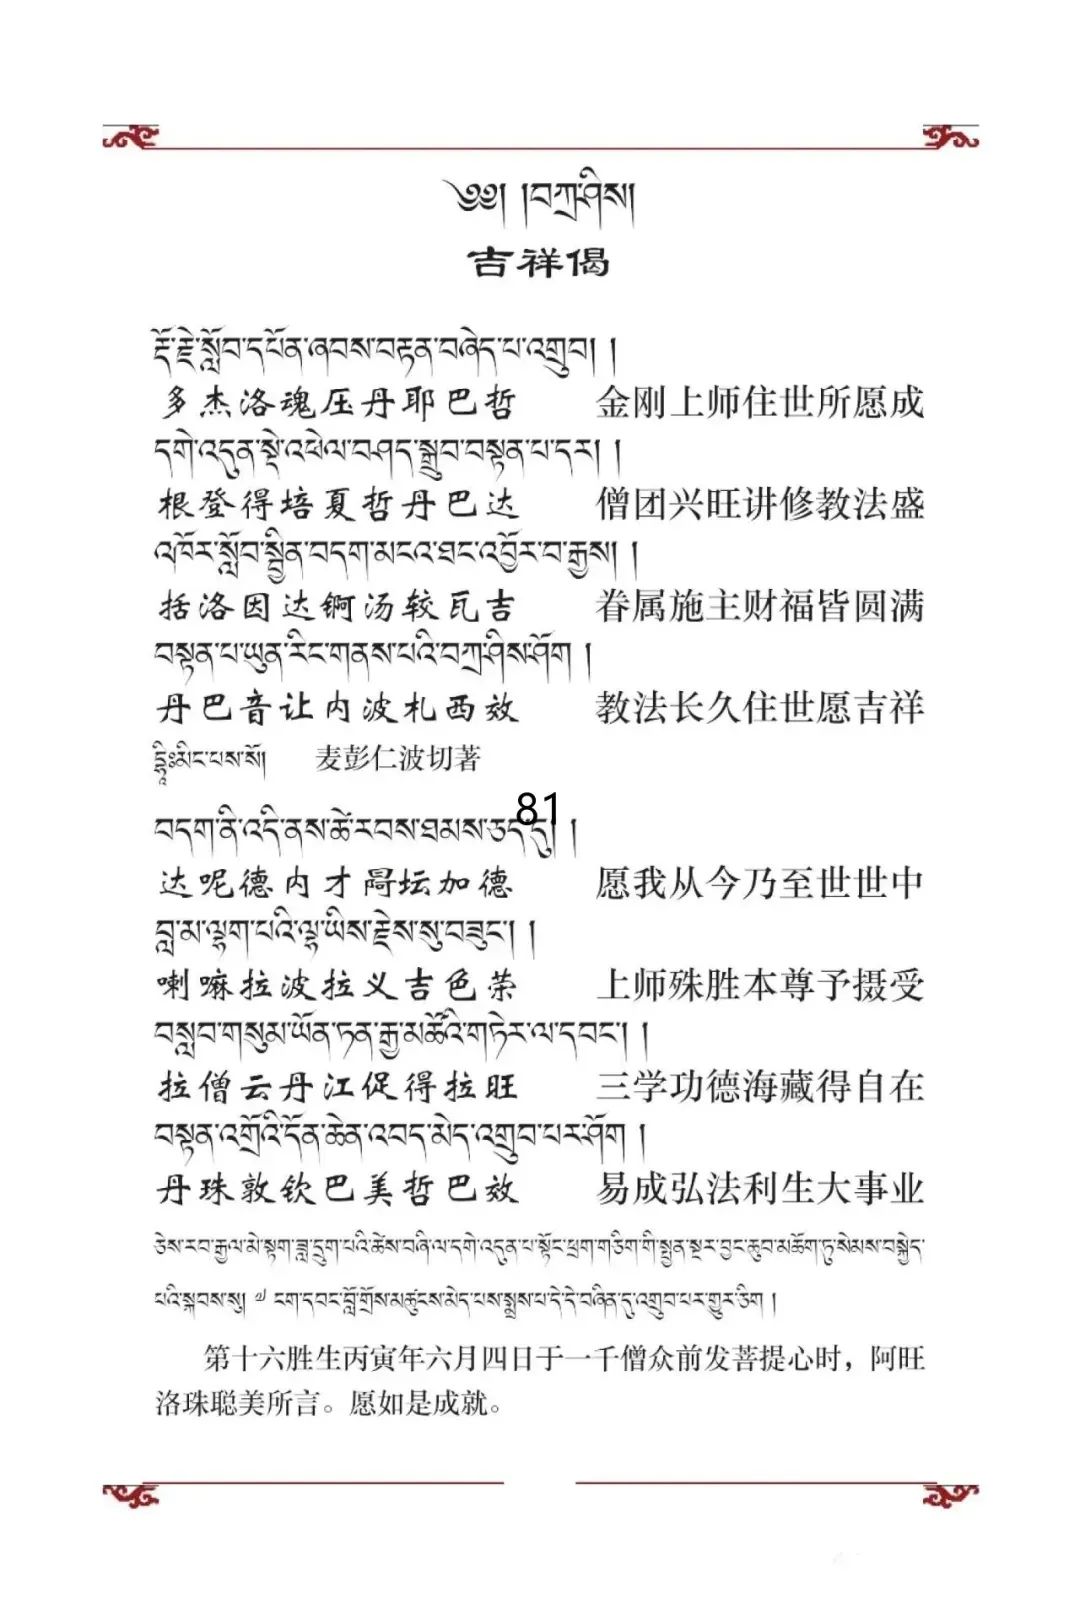 ༄༅། །བཀྲ་ཤིས།
吉祥偈
རྡོ་རྗེ་སློབ་དཔོན་ཞབས་བརྟན་བཞེད་པ་འགྲུབ། །
多杰洛魂压丹耶巴哲 金刚上师住世所愿成
དགེ་འདུན་སྡེ་འཕེལ་བཤད་སྒྲུབ་བསྟན་པ་དར། །
根登得培夏哲丹巴达 僧团兴旺讲修教法盛
འཁོར་སློབ་སྦྱིན་བདག་མངའ་ཐང་འབྱོར་བ་རྒྱས། །
括洛因达锕汤较瓦吉 眷属施主财福皆圆满
བསྟན་པ་ཡུན་རིང་གནས་པའི་བཀྲ་ཤིས་ཤོག །
丹巴音让内波札西效 教法长久住世愿吉祥
དྷཱིཿམིང་པས་སོ། 麦彭仁波切著
81
བདག་ནི་འདི་ནས་ཚེ་རབས་ཐམས་ཅད་དུ། །
达呢德内才闁坛加德 愿我从今乃至世世中
བླ་མ་ལྷག་པའི་ལྷ་ཡིས་རྗེས་སུ་བཟུང་། །
喇嘛拉波拉义吉色荣 上师殊胜本尊予摄受
བསླབ་གསུམ་ཡོན་ཏན་རྒྱ་མཚོའི་གཏེར་ལ་དབང་། །
拉僧云丹江促得拉旺 三学功德海藏得自在
བསྟན་འགྲོའི་དོན་ཆེན་འབད་མེད་འགྲུབ་པར་ཤོག །
丹珠敦钦巴美哲巴效 易成弘法利生大事业
ཅེས་རབ་རྒྱལ་མེ་སྟག་ཟླ་དྲུག་པའི་ཚེས་བཞི་ལ་དགེ་འདུན་པ་སྟོང་ཕྲག་གཅིག་གི་སྤྱན་སྔར་བྱང་ཆུབ་མཆོག་ཏུ་སེམས་བསྐྱེད་
པའི་སྐབས་སུ། ངག་དབང་བློ་གྲོས་མཚུངས་མེད་པས་སྨྲས་པ་དེ་དེ་བཞིན་དུ་འགྲུབ་པར་གྱུར་ཅིག །
第十六胜生丙寅年六月四日于一千僧众前发菩提心时，阿旺
洛珠聪美所言。愿如是成就。